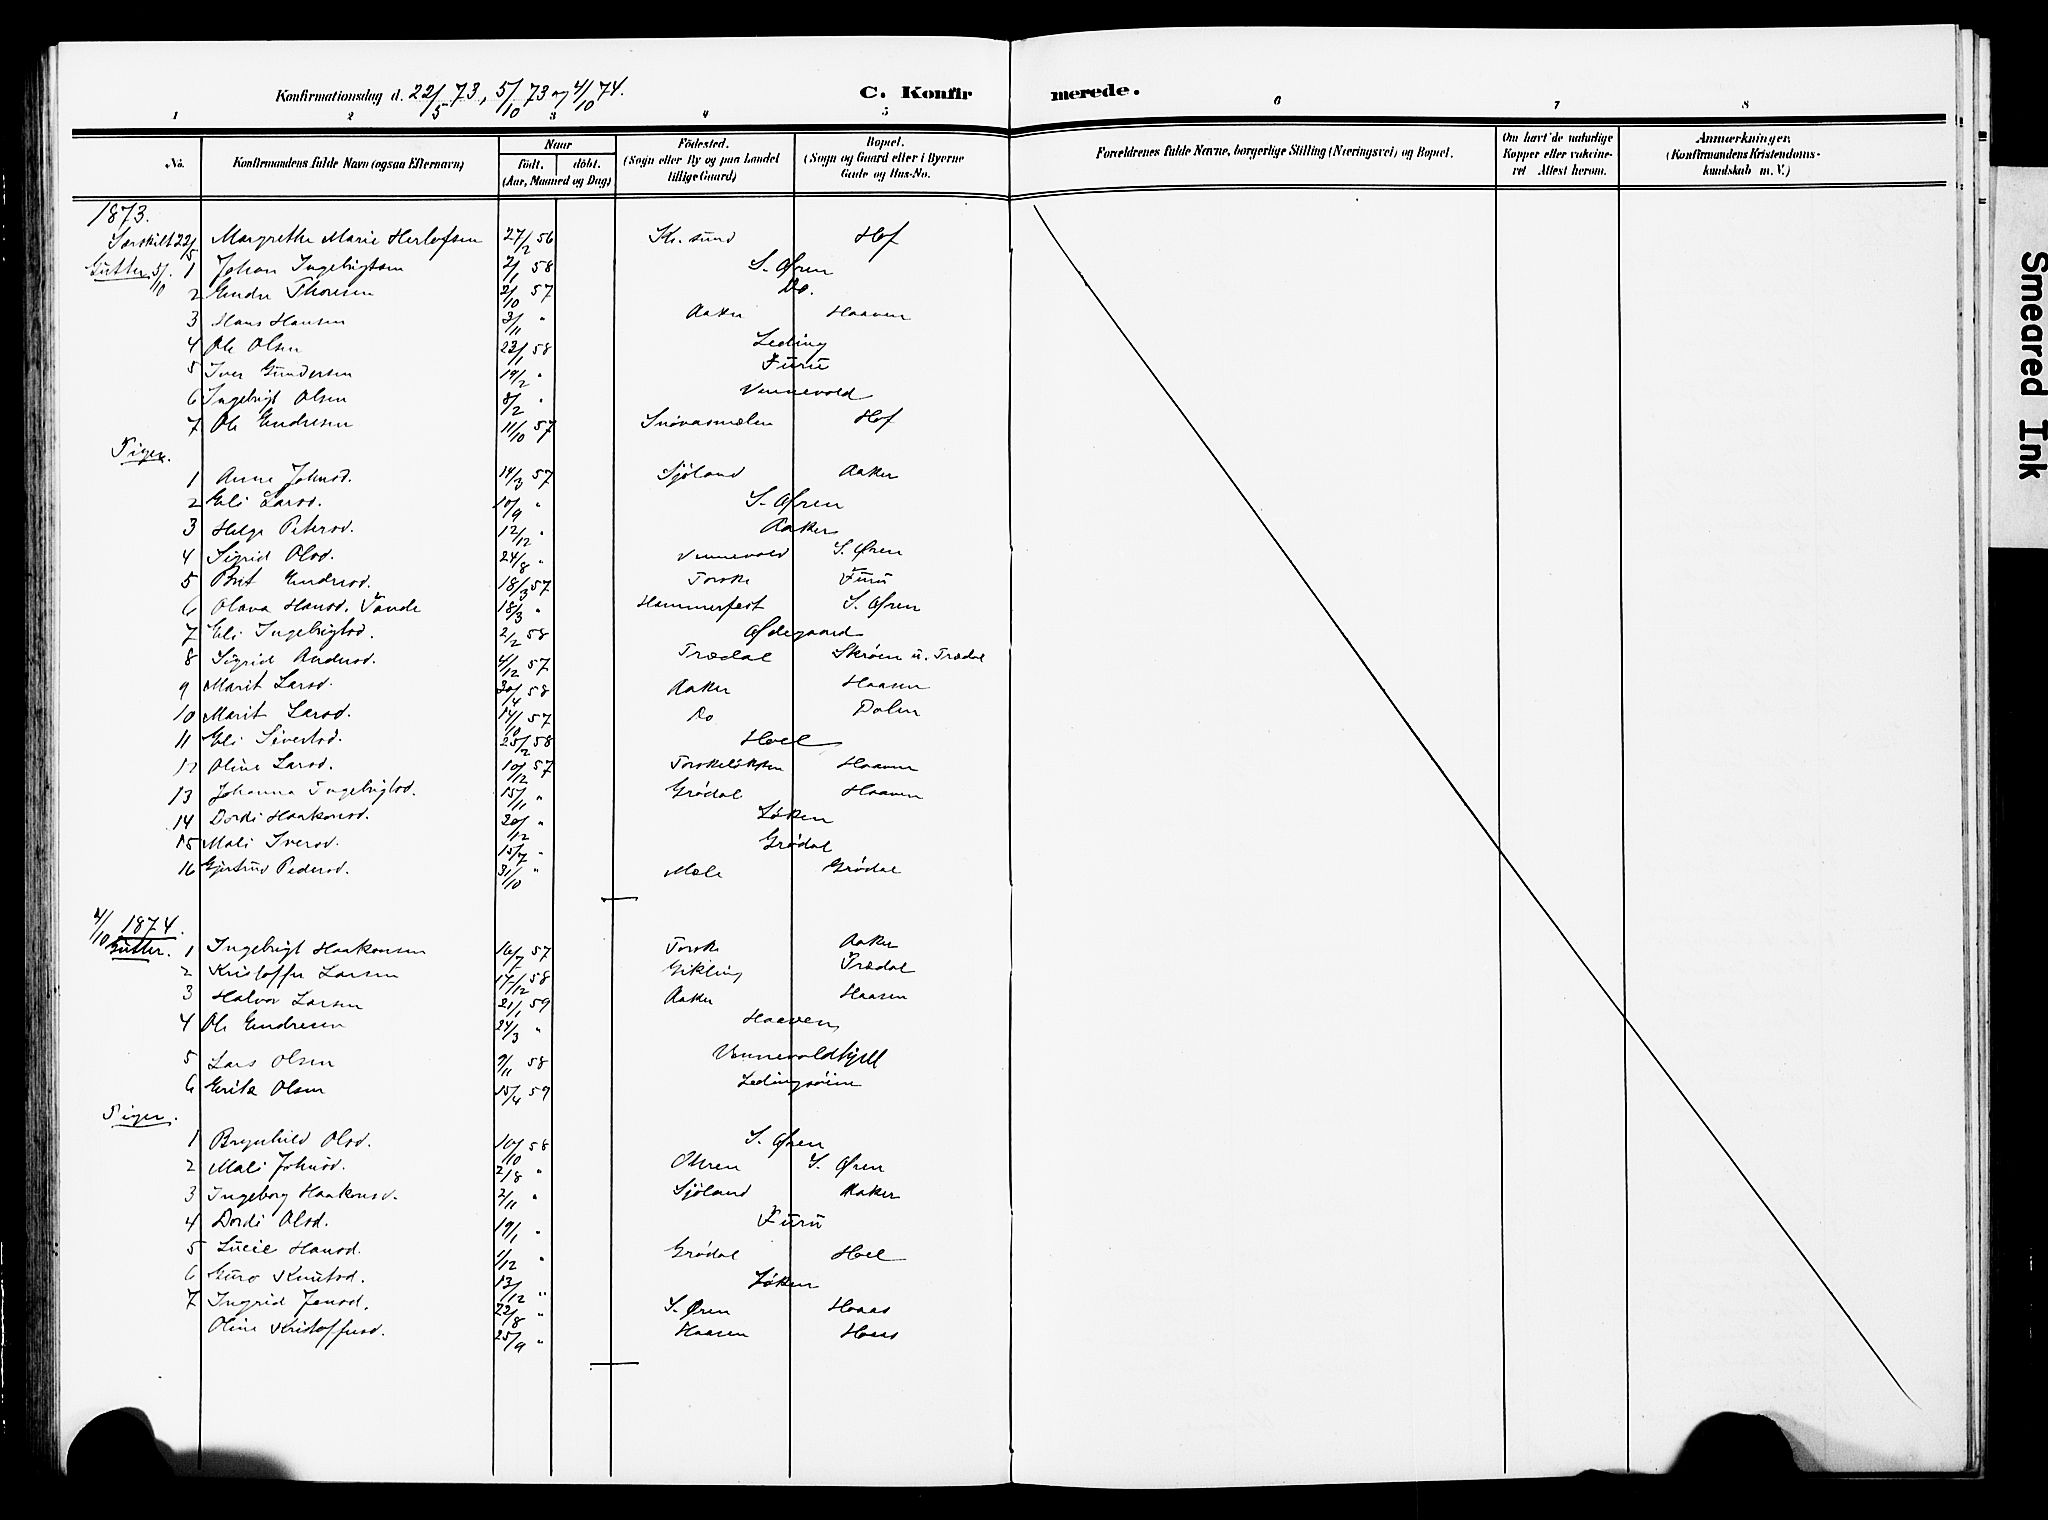 Konfirmationsdag d. 22/5 73, 5/10 73 og 4/10 74.
C. Konfirmerede.
1 2 3 4 5 6 7 8
No. Konfirmandens fulde Navn (ogsaa Efternavn) Naar födt. döbt. (Aar, Maaned og Dag) Födested. (Sogn eller By og paa Landet tillige Gaard) Bopæl. (Sogn og Gaard eller i Byerne Gade og Hus-No. Forældrenes fulde Navne, borgerlige Stilling (Næringsvei) og Bopæl. Om havt de naturlige Kopper eller vakcineret Attest herom. Anmærkninger. (Konfirmandens Kristendomskundskab m. V.)
1873.
Særskilt 22/5 Margrethe Marie Herlofsen 27/2 56 Kr. sund Hof
Gutter 5/10. 1 Johan Ingebrigtsen 2/1 58 S. Øren
2 Endre Thoresen 2/10 57 Do.
3 Hans Hansen 3/11 " Aaker Haaven
4 Ole Olsen 23/1 58 Leding
5 Iver Gundersen 19/2 " Furu
6 Ingebrigt Olsen 8/2 " Vennevold
7 Ole Endresen 11/10 57 Snøvasmælen Hof
Piger.
1 Anne Johnsd. 14/3 57 Sjøland Aaker
2 Eli Larsd. 10/9 " S. Øren
3 Helge Petersd. 12/12 " Aaker
4 Sigrid Olsd. 24/8 " Vennevold S. Øren
5 Brit Endresd. 18/3 57 Torske Furu
6 Olava Hansd. Vande 18/3 " Hammerfest S. Øren
7 Eli Ingebrigtsd. 2/2 58 Ødegaard
8 Sigrid Andersd. 4/12 57 Trædal Skrøen u. Trædal
9 Marit Larsd. 30/4 58 Aaker Haasen
10 Marit Larsd. 14/10 57 Do Dalen
11 Eli Sivertsd. 25/2 58 Hoel
12 Oline Larsd. 10/12 57 Torskeløkken Haaven
13 Johanna Ingebrigtsd. 15/11 " Grødal Haaven
14 Dordi Haakonsd. 20/12 " Løken
15 Mali Iversd. 15/7 " Grødal
16 Gjertrud Pedersd. 31/10 " Mæle Grødal
4/10 1874.
Gutter. 1 Ingebrigt Haakonsen 16/7 57 Torske Aaker
2 Kristoffer Larsen 17/12 58 Gikling Trædal
3 Halvor Larsen 21/1 59 Aaker Haasen
4 Ole Endresen 24/3 " Haaven
5 Lars Olsen 9/11 58 Vennevoldhjell
6 Erik Olsen 15/4 59 Ledingsøien
Piger.
1 Brynhild Olsd. 10/10 58 S. Øren
2 Mali Johnsd. 2/8 " Ohren S. Øren
3 Ingeborg Haakonsd. 2/11 " Sjøland Aaker
4 Dordi Olsd. 19/1 " Furu
5 Lucie Hansd. 1/12 " Grødal Hoel
6 Guro Knutsd. 13/12 " Løken
7 Ingrid Jonsd. 22/8 " S. Øren Haas
Oline Kristoffersd. 25/9 " Haasen Haas
Smeared Ink